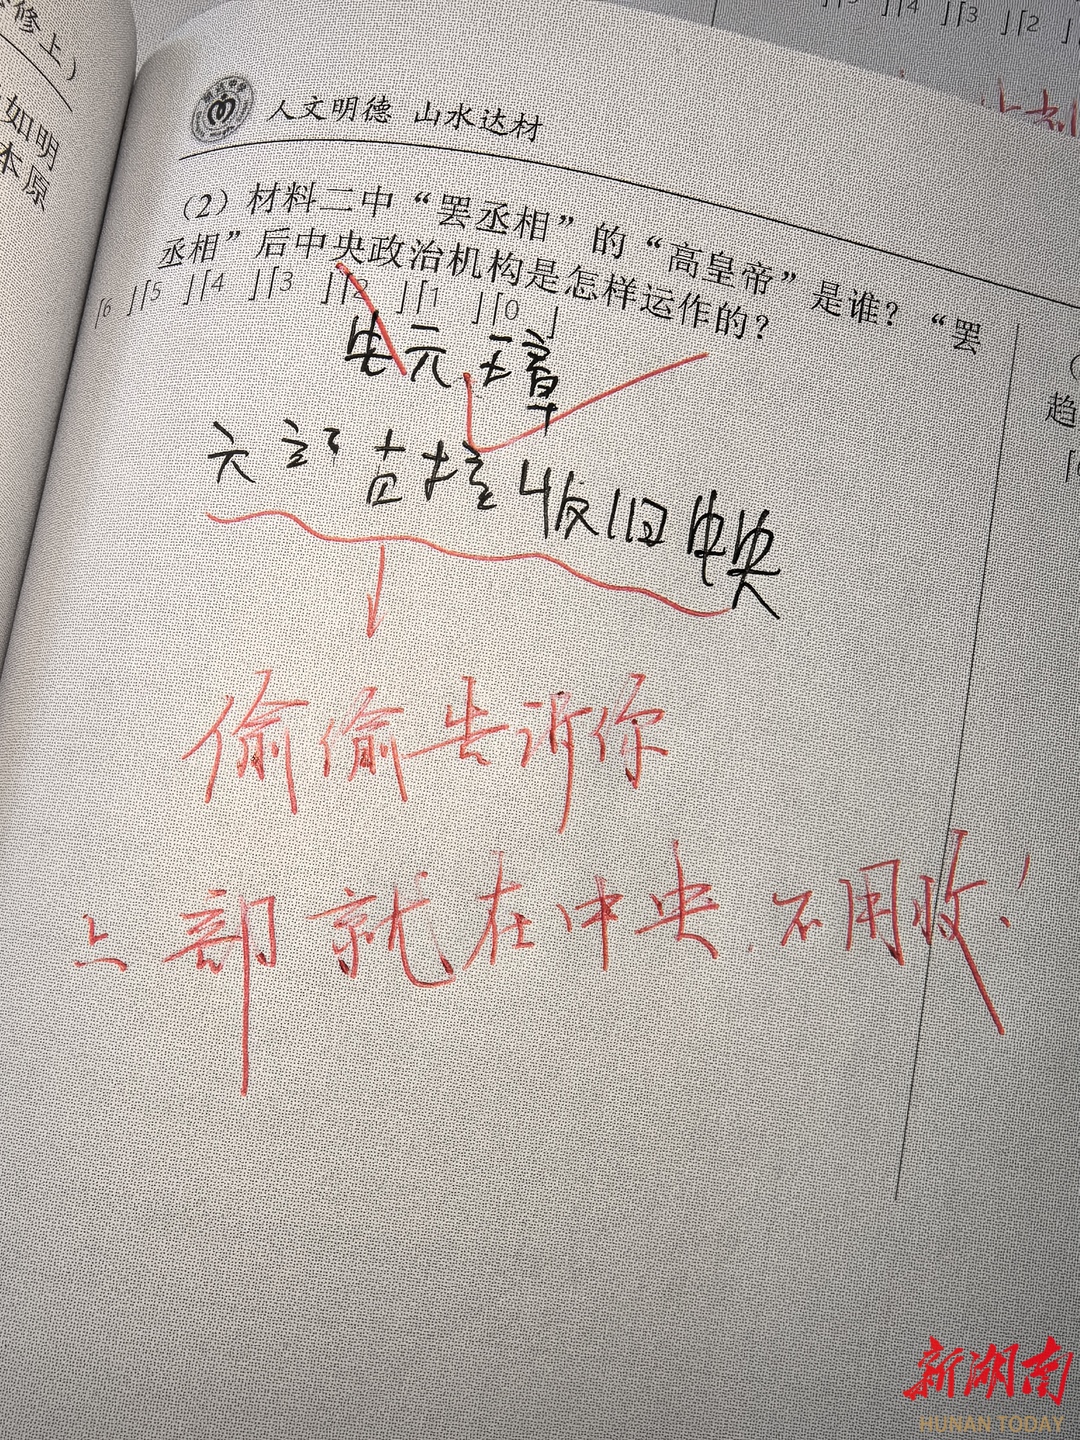 修上）
如明
本原
人文明德 山水达材
（2）材料二中“罢丞相”的“高皇帝”是谁？“罢
丞相”后中央政治机构是怎样运作的？
[6] [5] [4] [3] [2] [1] [0]
朱元璋
六部直接收归中央
偷偷告诉你
六部就在中央，不用收！
趋
新湖南
HUNAN TODAY